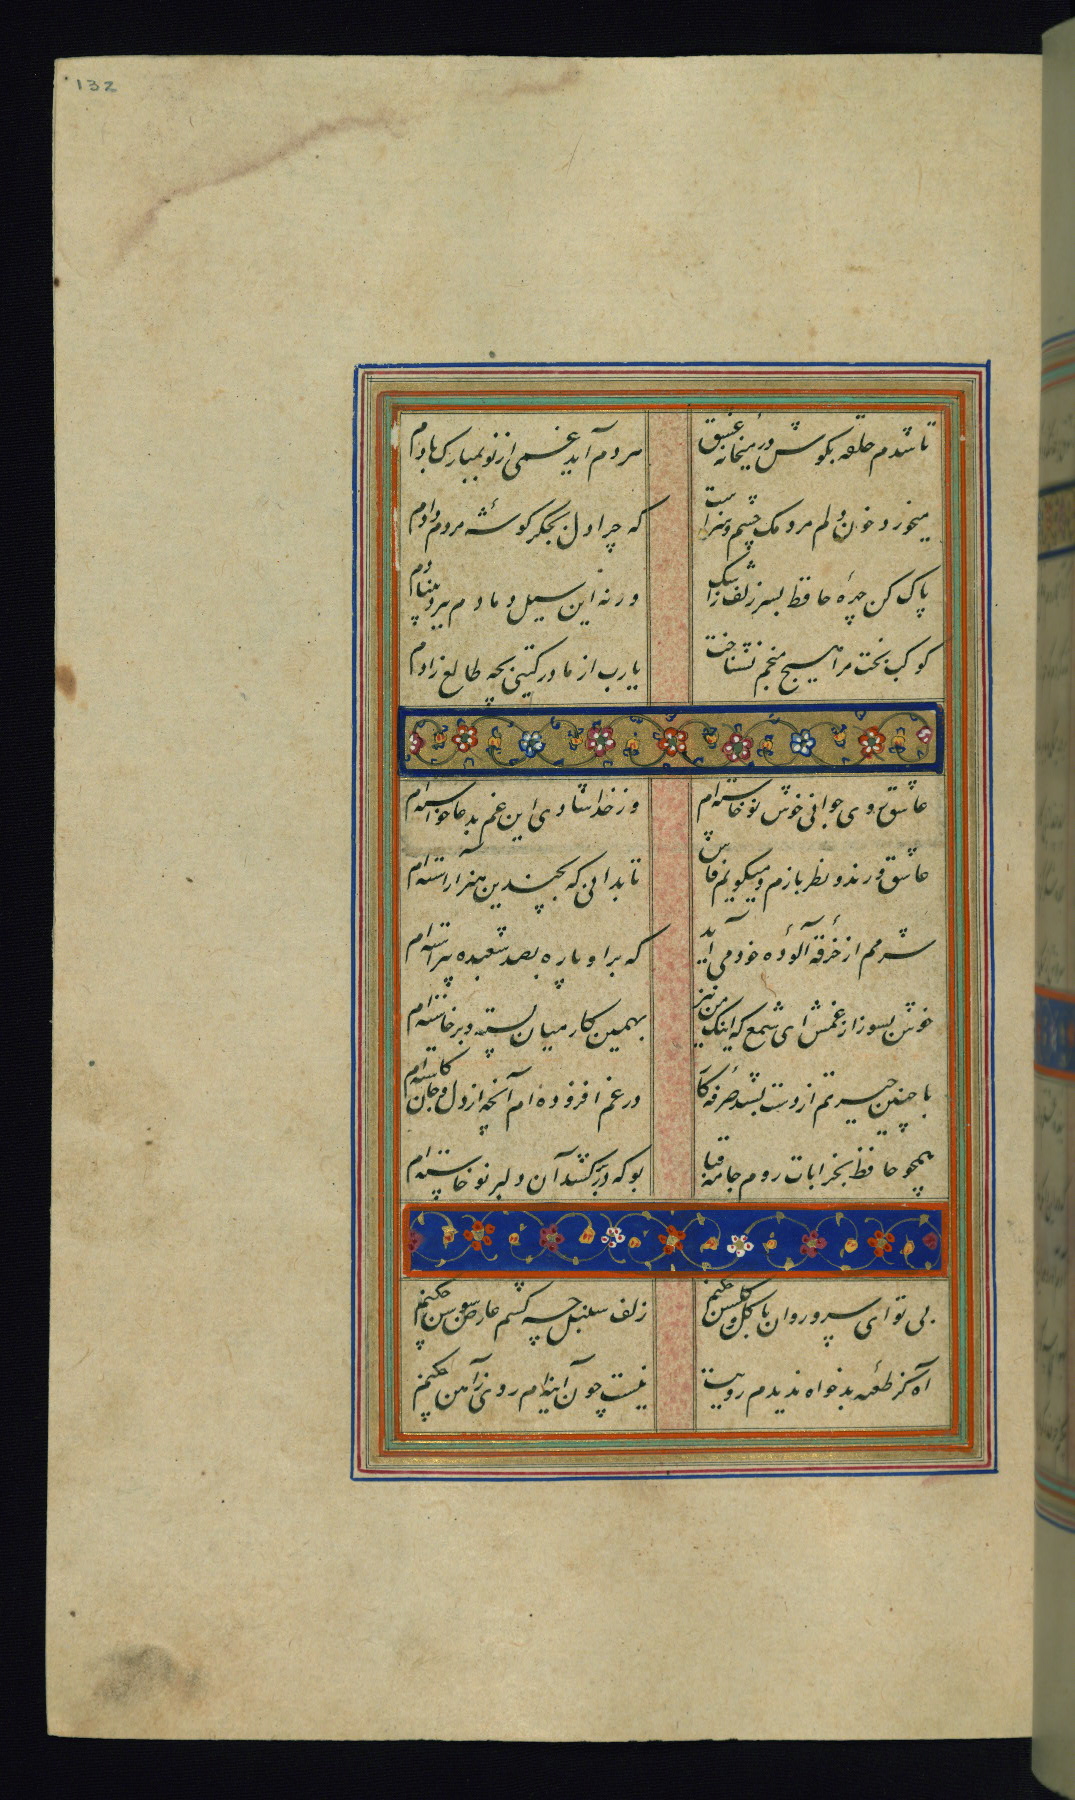 132
تا شدم حلقه بکوش در میخانه عشق هر دم آید غمی از نو بمبارک بادم
میخورد خون دلم مردمک چشم و سزاست که چرا دل بجگر کوشه مردم دادم
پاک کن چهره حافظ بسر زلف ز اشک ورنه این سیل دمادم ببرد بنیادم
کوکب بخت مرا هیچ منجم نشناخت یارب از مادر کیتی بچه طالع زادم
عاشق روی جوانی خوش نوخاسته ام وز خدا شادی این غم بدعا خواسته ام
عاشق و رند و نظر بازم و میکویم فاش تا بدانی که بچندین هنر آراسته ام
شرمم از خرقه آلوده خود می آید که برا و پاره بصد شعبده پیراسته ام
خوش بسوز از غمش ای شمع که اینک من نیز بهمین کار میان بسته و برخاسته ام
با چنین حیرتم از دست بشد صرفه کار در غم افزوده ام آنچه از دل و جان کاسته ام
همچو حافظ بخرابات روم جامه قبا بو که در بر کشد آن دلبر نوخاسته ام
بی تو ای سرو روان با کل و کلشن چکنم زلف سنبل چه کشم عارض سوسن چکنم
آه کز طعنه بدخواه ندیدم رویت نیست چون آینه ام روی ز آهن چکنم